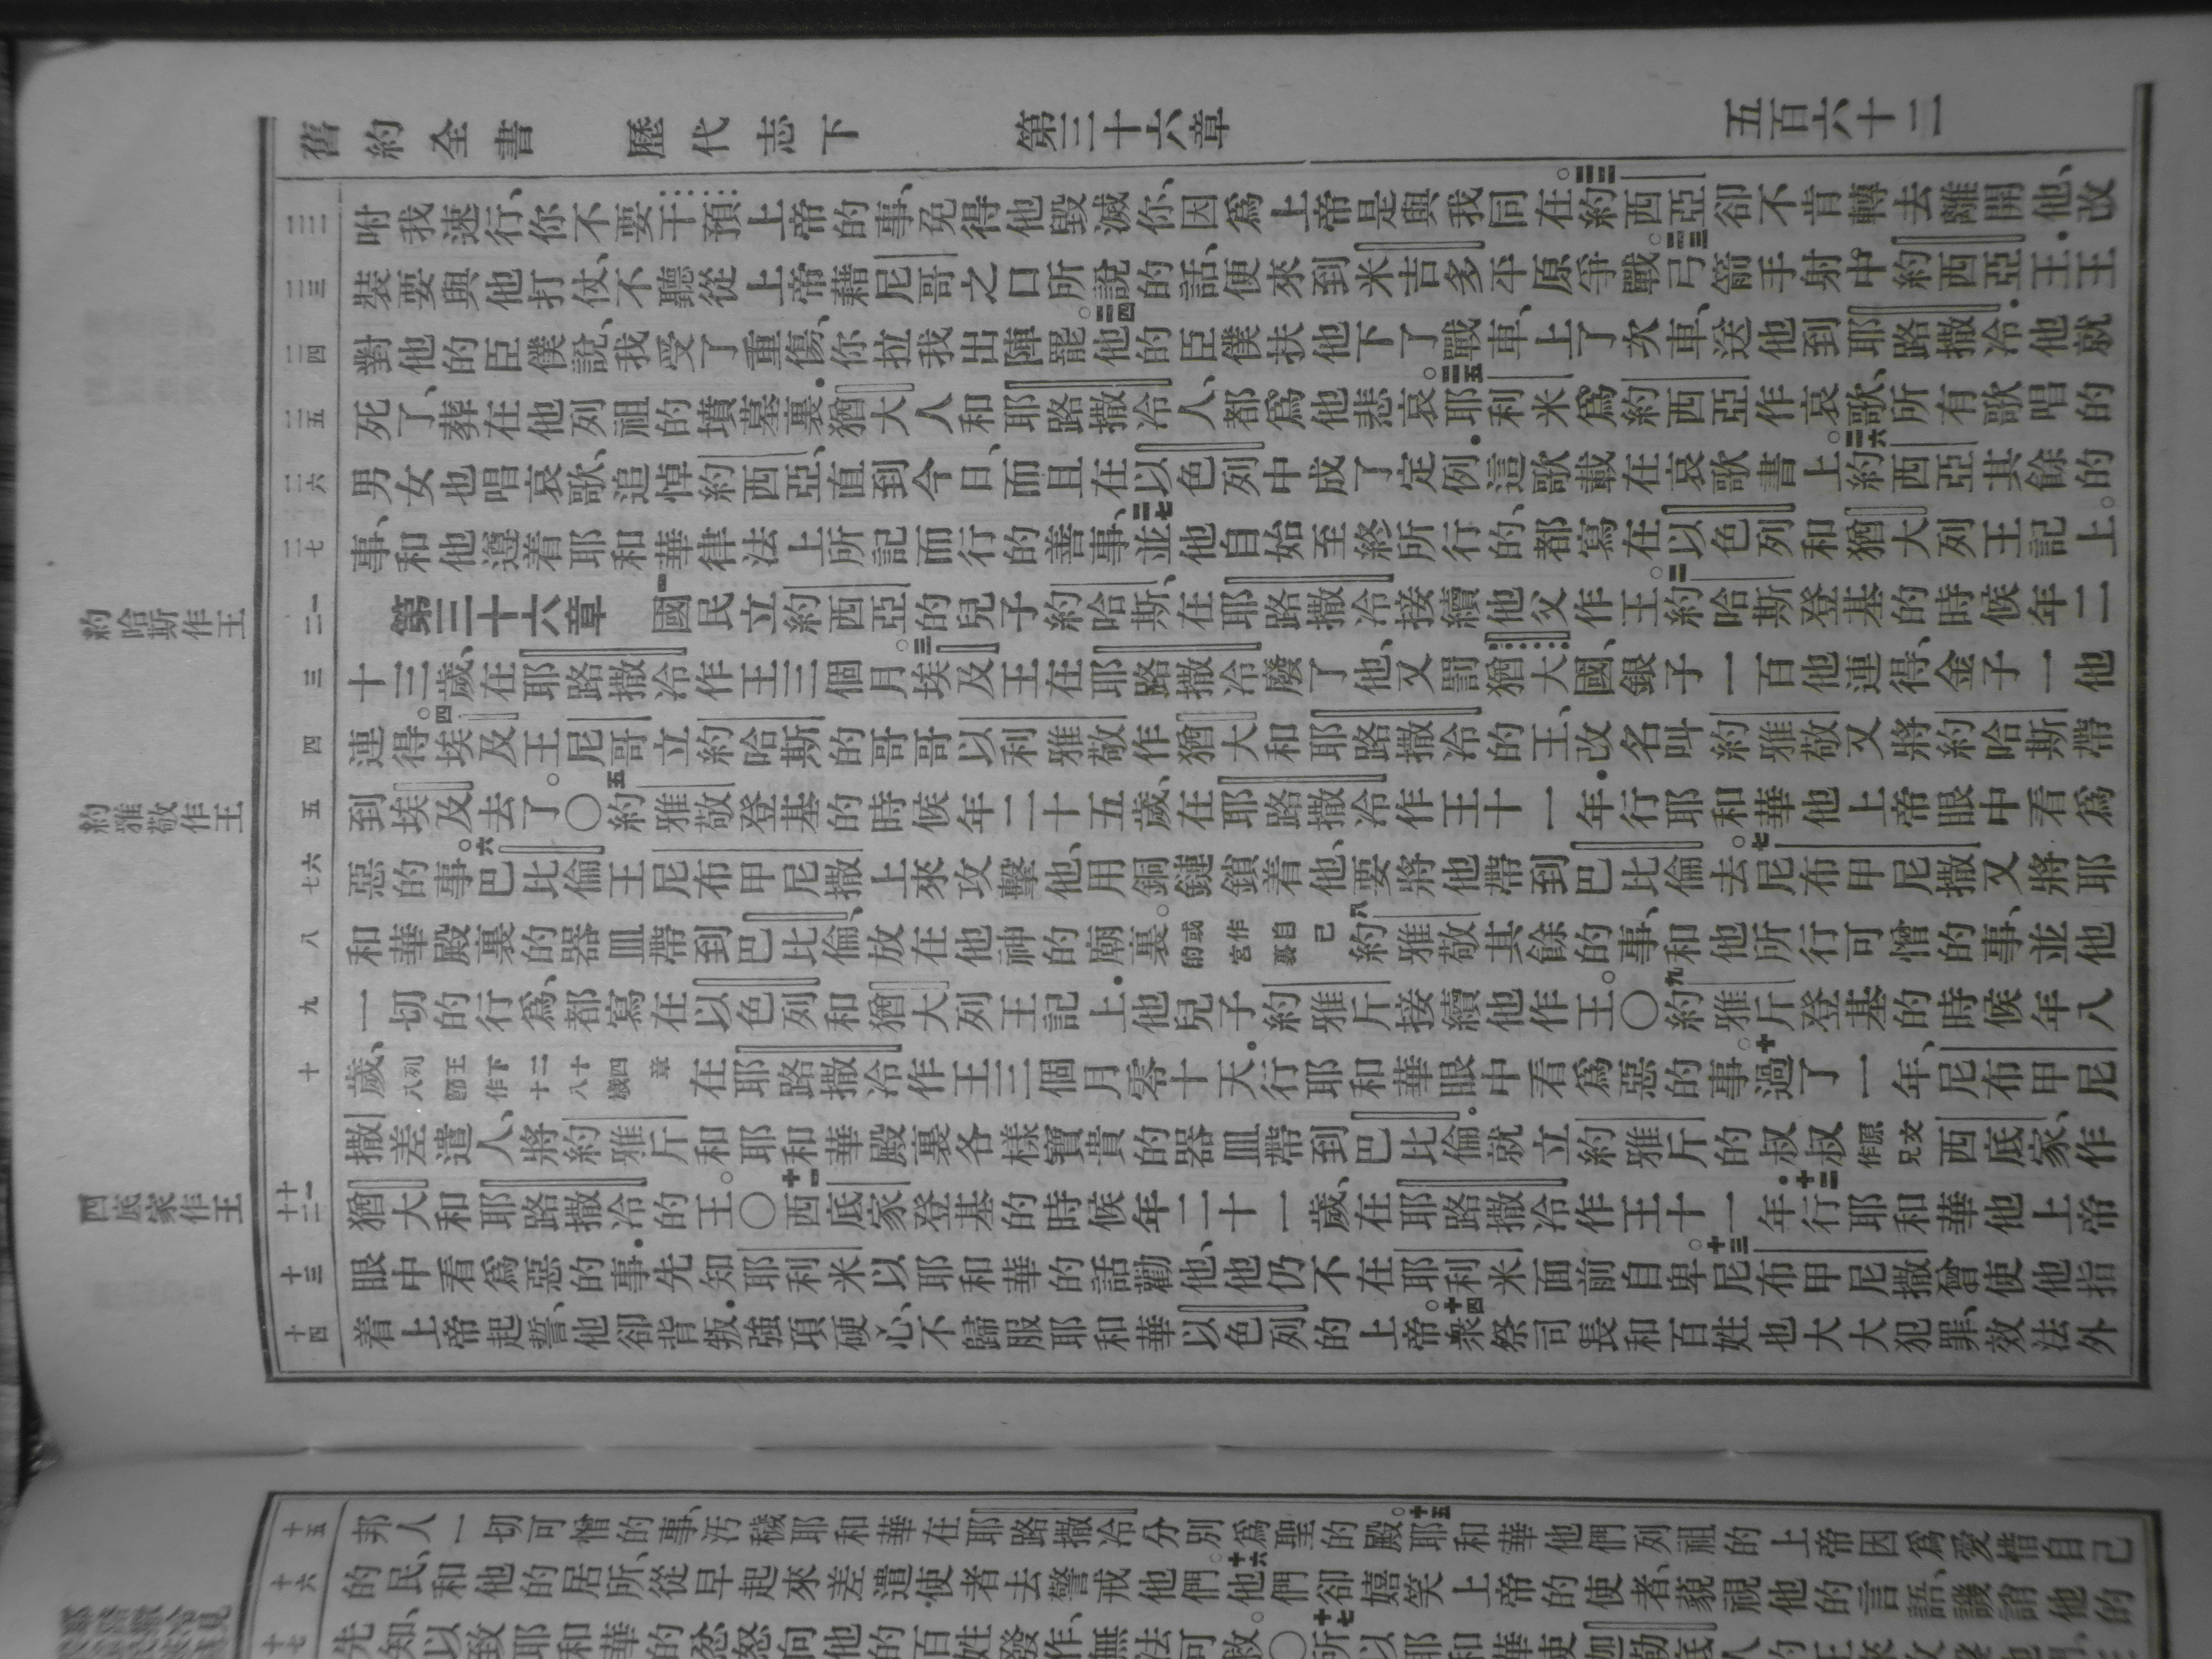 舊約全書 歷代志下 第三十六章 五百六十二
咐我速行、你不要干預上帝的事、免得他毀滅你、因爲上帝是與我同在。約西亞卻不肯轉去離開他、改
裝要與他打仗、不聽從上帝藉尼哥之口所說的話、便來到米吉多平原爭戰。弓箭手射中約西亞王.王
對他的臣僕說、我受了重傷、你拉我出陣罷。他的臣僕扶他下了戰車、上了次車、送他到耶路撒冷.他就
死了、葬在他列祖的墳墓裏.猶大人和耶路撒冷人、都爲他悲哀。耶利米爲約西亞作哀歌、所有歌唱的
男女也唱哀歌、追悼約西亞、直到今日、而且在以色列中成了定例.這歌載在哀歌書上。約西亞其餘的
事、和他遵着耶和華律法上所記而行的善事、並他自始至終所行的、都寫在以色列和猶大列王記上。
第三十六章 一國民立約西亞的兒子約哈斯、在耶路撒冷接續他父作王。二約哈斯登基的時候年二
十三歲、在耶路撒冷作王三個月。三埃及王在耶路撒冷廢了他、又罰猶大國、銀子一百他連得、金子一他
連得。四埃及王尼哥立約哈斯的哥哥以利雅敬作猶大和耶路撒冷的王、改名叫約雅敬又將約哈斯帶
到埃及去了。〇五約雅敬登基的時候年二十五歲、在耶路撒冷作王十一年.行耶和華他上帝眼中看爲
惡的事。六巴比倫王尼布甲尼撒上來攻擊他、用銅鏈鎖着他、要將他帶到巴比倫去。七尼布甲尼撒又將耶
和華殿裏的器皿帶到巴比倫、放在他神的廟裏。或作自己的宮裏八約雅敬其餘的事、和他所行可憎的事、並他
一切的行爲、都寫在以色列和猶大列王記上.他兒子約雅斤接續他作王。〇九約雅斤登基的時候年八
歲、列王下二十四章八節作十八歲在耶路撒冷作王三個月零十天.行耶和華眼中看爲惡的事。十過了一年、尼布甲尼
撒差遣人、將約雅斤和耶和華殿裏各樣寶貴的器皿帶到巴比倫.就立約雅斤的叔叔原文作兄西底家、作
猶大和耶路撒冷的王。〇十一西底家登基的時候年二十一歲、在耶路撒冷作王十一年.十二行耶和華他上帝
眼中看爲惡的事.先知耶利米以耶和華的話勸他、他仍不在耶利米面前自卑。十三尼布甲尼撒曾使他指
着上帝起誓、他卻背叛.強項硬心、不歸服耶和華以色列的上帝。十四衆祭司長和百姓也大大犯罪、效法外
約哈斯作王
約雅敬作王
西底家作王
邦人一切可憎的事、汚穢耶和華在耶路撒冷分別爲聖的殿。十五耶和華他們列祖的上帝因爲愛惜自己
的民、和他的居所、從早起來差遣使者去警戒他們。十六他們卻嬉笑上帝的使者、藐視他的言語、譏誚他的
先知、以致耶和華的忿怒向他的百姓發作、無法可救。〇十七所以耶和華使迦勒底人的王來攻